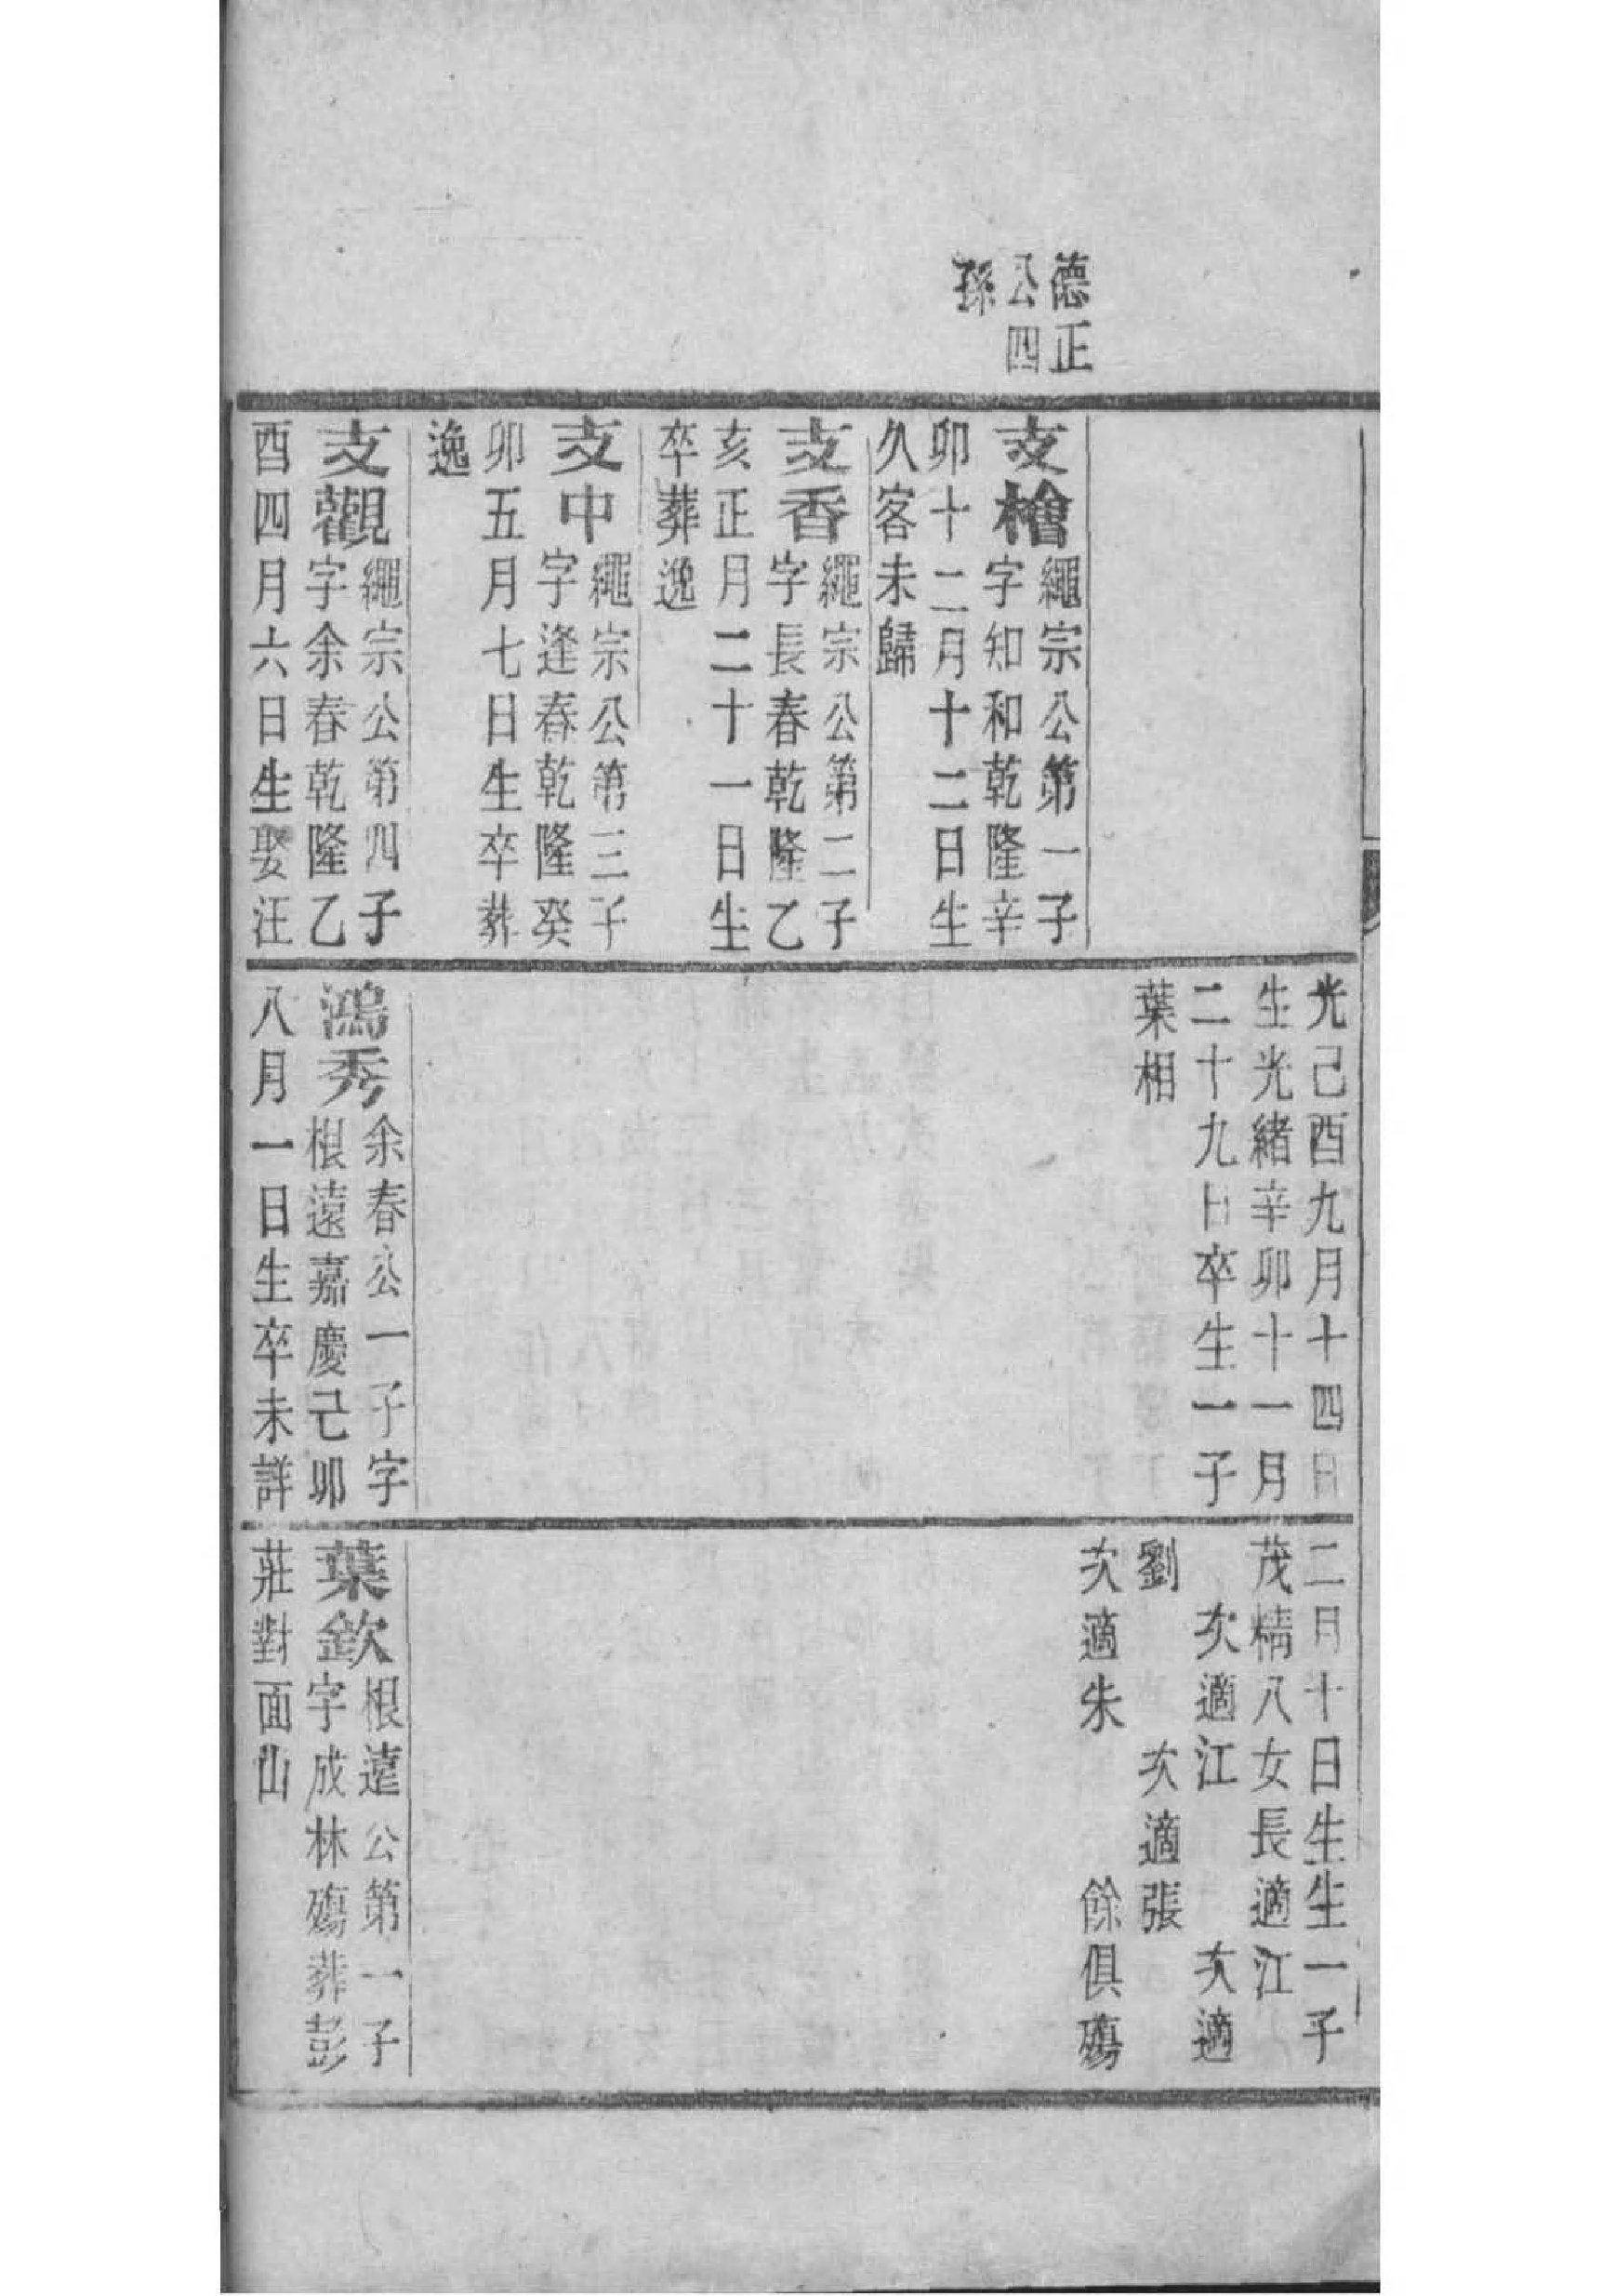 德正
公四
孫
支檜
繩宗公第一子
字知和乾隆辛
卯十二月十二日生
久客未歸
支香
繩宗公第二子
字長春乾隆乙
亥正月二十一日生
卒葬逸
支中
繩宗公第三子
字逢春乾隆癸
卯五月七日生卒葬
逸
支觀
繩宗公第四子
字余春乾隆乙
酉四月六日生娶汪
光己酉九月十四日
生光緒辛卯十一月
二十九日卒生一子
葉相
鴻秀
余春公一子字
根遠嘉慶己卯
八月一日生卒未詳
二月十日生生一子
茂精八女長適江
次適江　次適
劉　次適張
次適朱　餘俱殤
葉欽
根遠公第一子
字成林殤葬彭
莊對面山